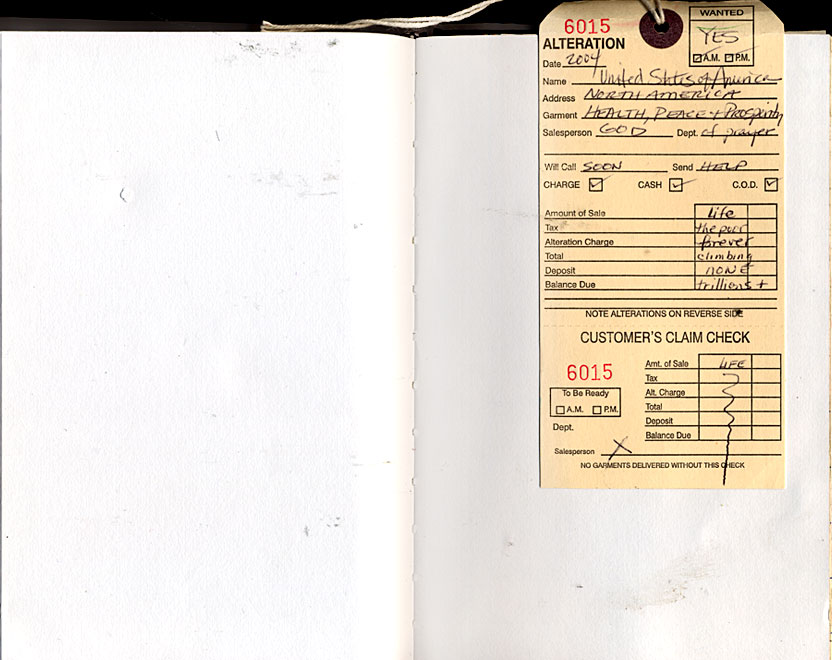 6015
WANTED
YES
A.M. P.M.
ALTERATION
Date 2004
Name United States of America
Address NORTH AMERICA
Garment HEALTH, PEACE + Prosperity
Salesperson GOD Dept. of prayer
Will Call SOON Send HELP
CHARGE CASH C.O.D.
Amount of Sale Life
Tax the poor
Alteration Charge forever
Total climbing
Deposit NONE
Balance Due trillions +
NOTE ALTERATIONS ON REVERSE SIDE
CUSTOMER'S CLAIM CHECK
6015
To Be Ready
A.M. P.M.
Dept.
Amt. of Sale LIFE
Tax
Alt. Charge
Total
Deposit
Balance Due
Salesperson X
NO GARMENTS DELIVERED WITHOUT THIS CHECK